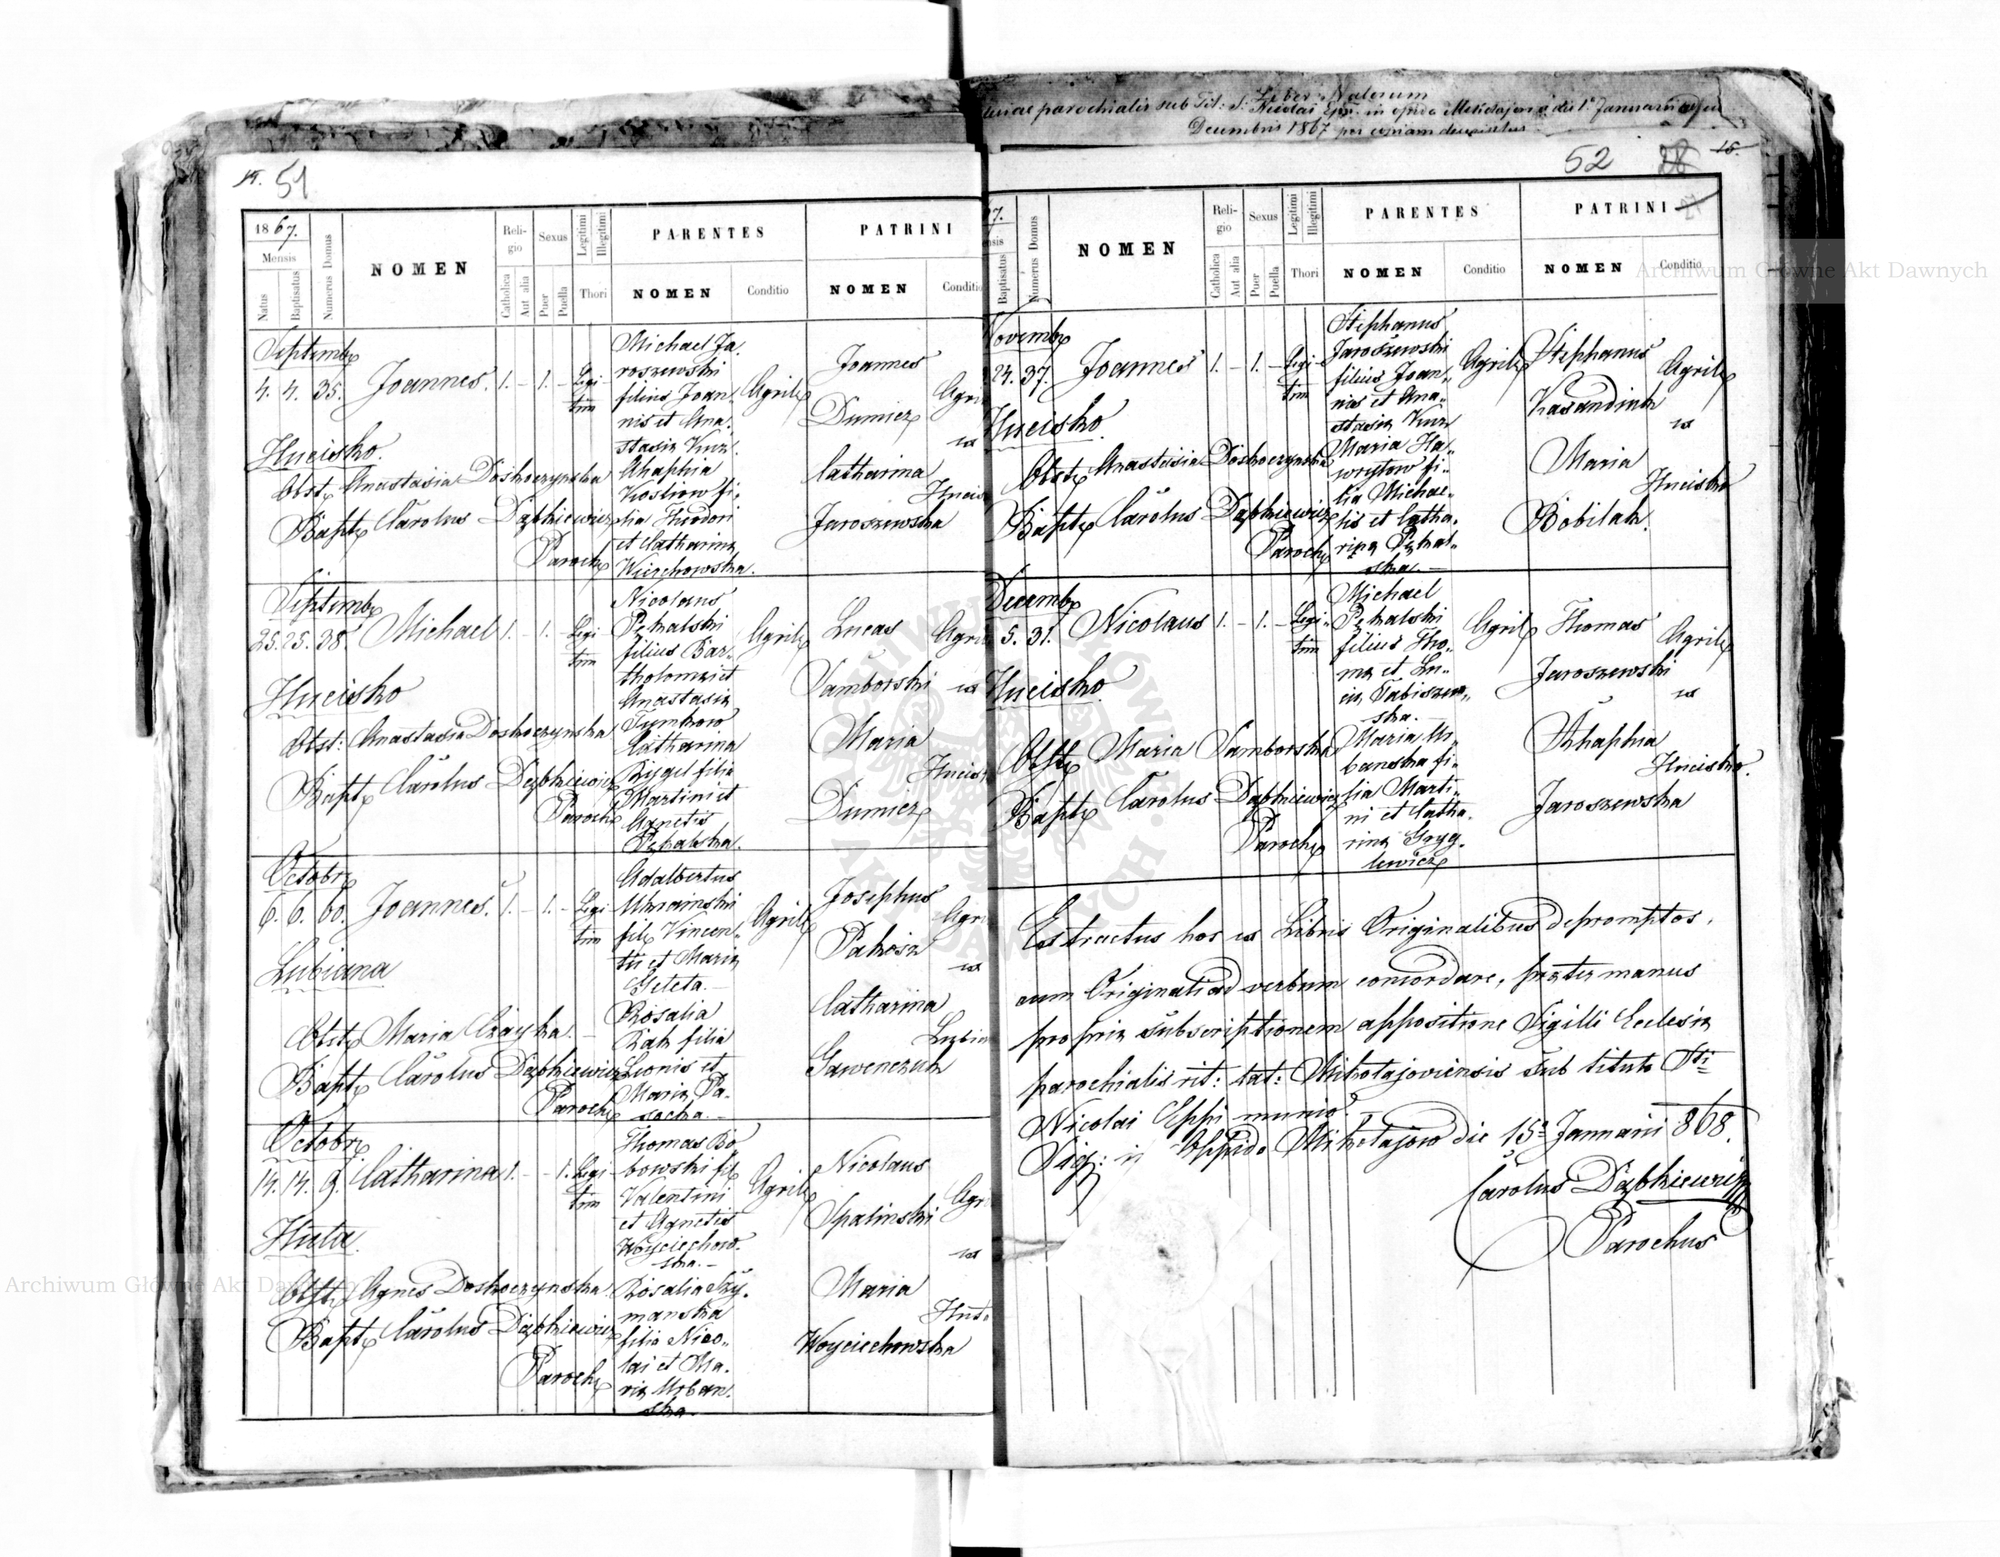 Liber Natorum
parochialis sub Tit: S. Nicolai Epi. in oppdo Mikołajow a die 1ª Januarii
Decembris 1867 per copiam descriptus
51
1867.
Mensis
Natus
Baptisatus
Numerus Domus
NOMEN
Reli-
gio
Catholica
Aut alia
Sexus
Puer
Puella
Legitimi
Illegitimi
Thori
PARENTES
NOMEN
Conditio
PATRINI
NOMEN
Conditio
Septembr
4. 4. 35. Joannes. 1. – 1. – Legi
tim
Hucisko.
Obst. Anastasia Doskoczynska
Bapt. Carolus Dąbkiewicz
Paroch
Michael Ja-
roszewski
filius Joan-
nis et Ana-
stasiæ Kuz.
Ahaphia
Kostiow fi-
lia Theodori
et Catharinæ
Wierchowska.
Agric
Joannes
Dumicz
Catharina
Jaroszewska
Agri
ex
Hucis
Septembr
25. 25. 28. Michael 1. – 1. – Legi
tim
Hucisko
Obst: Anastasia Doskoczynska
Bapt. Carolus Dąbkiewicz
Paroch
Nicolaus
Pękalski
filius Bar-
tholomæi et
Anastasiæ
Tymkow
Catharina
Rygel filia
Martini et
Agnetis
Pękalska.
Agric
Lucas
Samborski
Maria
Dumicz
Agri
ex
Hucis
Octobr
6. 6. 60. Joannes. 1. – 1. – Legi
tim
Lubiana
Obst. Maria Czayka.
Bapt. Carolus Dąbkiewicz
Paroch
Adalbertus
Ukrainski
fil Vincen-
tii et Mariæ
Geleta.
Rosalia
Rak filia
Leonis et
Mariæ Pa-
socha.
Agric
Josephus
Pakosz
Catharina
Gawenczuk
Agri
ex
Lubia
Octobr
14. 14. 9. Catharina 1. – – 1. Legi
tim
Huta.
Obst. Agnes Doskoczynska.
Bapt. Carolus Dąbkiewicz
Paroch
Thomas Bo
bowski fil
Valentini
et Agnetis
Woyciechow-
ska.
Rosalia Szy-
manska
filia Nico-
lai et Ma-
riæ Urban-
ska.
Agric
Nicolaus
Spalinski
Maria
Woyciechowska
Agr
ex
Huta
52
28
15.
7.
Baptisatus
Numerus Domus
NOMEN
Reli-
gio
Catholica
Aut alia
Sexus
Puer
Puella
Legitimi
Illegitimi
Thori
PARENTES
NOMEN
Conditio
PATRINI
NOMEN
Conditio
Novembr
24. 37. Joannes 1. – 1. – Legi
tim
Hucisko.
Obst. Anastasia Doskoczynska
Bapt. Carolus Dąbkiewicz
Paroch
Stephanus
Jaroszewski
filius Joan-
nis et Ana-
stasiæ Kuz
Maria Ha-
wrylow fi-
lia Michae-
lis et Catha-
rinæ Pękal-
ska.
Agric
Stephanus
Kasandiak
Maria
Bobilak.
Agric
ex
Hucisko
Decembr
5. 31. Nicolaus 1. – 1. – Legi-
tim
Hucisko.
Obst. Maria Samborska
Bapt. Carolus Dąbkiewicz
Paroch
Michael
Pękalski
filius Tho-
mæ et Lu-
ciæ Tabiszew-
ska.
Maria Ur-
banska fi-
lia Marti-
ni et Catha-
rinæ Gryg-
lewicz
Agric
Thomas
Jaroszewski
Ahaphia
Jaroszewska
Agric
ex
Hucisko.
Extractus hos ex Libris Originalibus depromptos,
cum Originali ad verbum concordare, præter manus
propriæ subscriptionem appositione Sigilli Ecclesiæ
parochialis rit: lat: Mikołajoviensis sub titulo Sti
Nicolai Eppi munio.
Sig: in Oppido Mikołajow die 15ª Januarii 868.
Carolus Dąbkiewicz
Parochus
Archiwum Główne Akt Dawnych
Archiwum Główne Akt Dawnych
ARCHIWUM GŁÓWNE AKT DAWNYCH